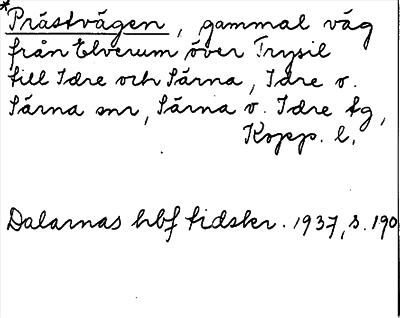 *Prästvägen, gammal väg
från Elverum över Trysil
till Idre och Särna, Idre o.
Särna snr, Särna o. Idre tg,
Kopp. l.
Dalarnas hbf tidskr. 1937, s. 190